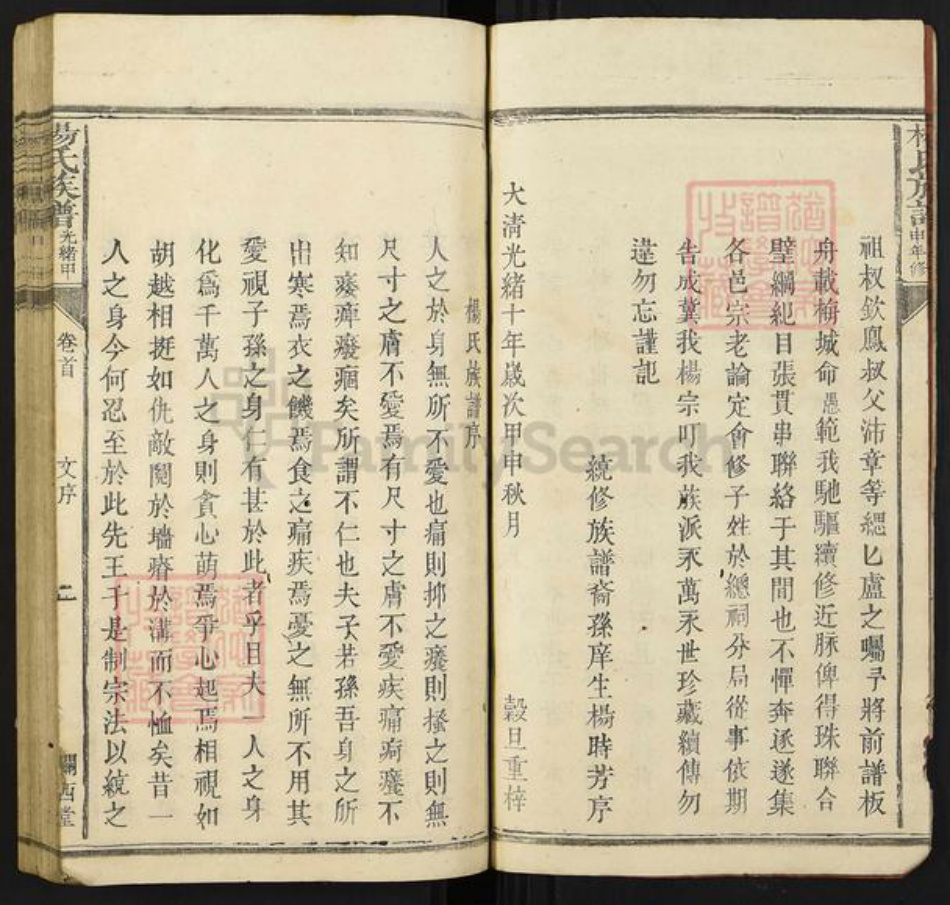 楊氏族譜 申年修
祖叔欽鳳叔父沛章等總匕盧之囑予將前譜板
舟載梅城命愚範我馳驅續修近脉俾得珠聯合
璧綱紀目張貫串聯絡于其間也不憚奔逐遂集
各邑宗老論定會修子姓於總祠分局從事依期
告成冀我楊宗叮我族派永萬永世珍藏續傳勿
違勿忘謹記
統修族譜裔孫庠生楊時芳序
大淸光緒十年歲次甲申秋月 穀旦重梓
楊氏族譜序
人之於身無所不愛也痛則抑之癢則搔之則無
尺寸之膚不愛焉有尺寸之膚不愛疾痛痾癢不
知痿痺癈痼矣所謂不仁也夫子若孫吾身之所
出寒焉衣之饑焉食之痛疾焉憂之無所不用其
愛視子孫之身仁有甚於此者乎且夫一人之身
化爲千萬人之身則貪心萌焉爭心起焉相視如
胡越相挺如仇敵鬩於墻瘠於溝而不恤矣昔一
人之身今何忍至於此先王于是制宗法以統之
楊氏族譜 光緒甲 卷首 文序 二 關西堂
FamilySearch